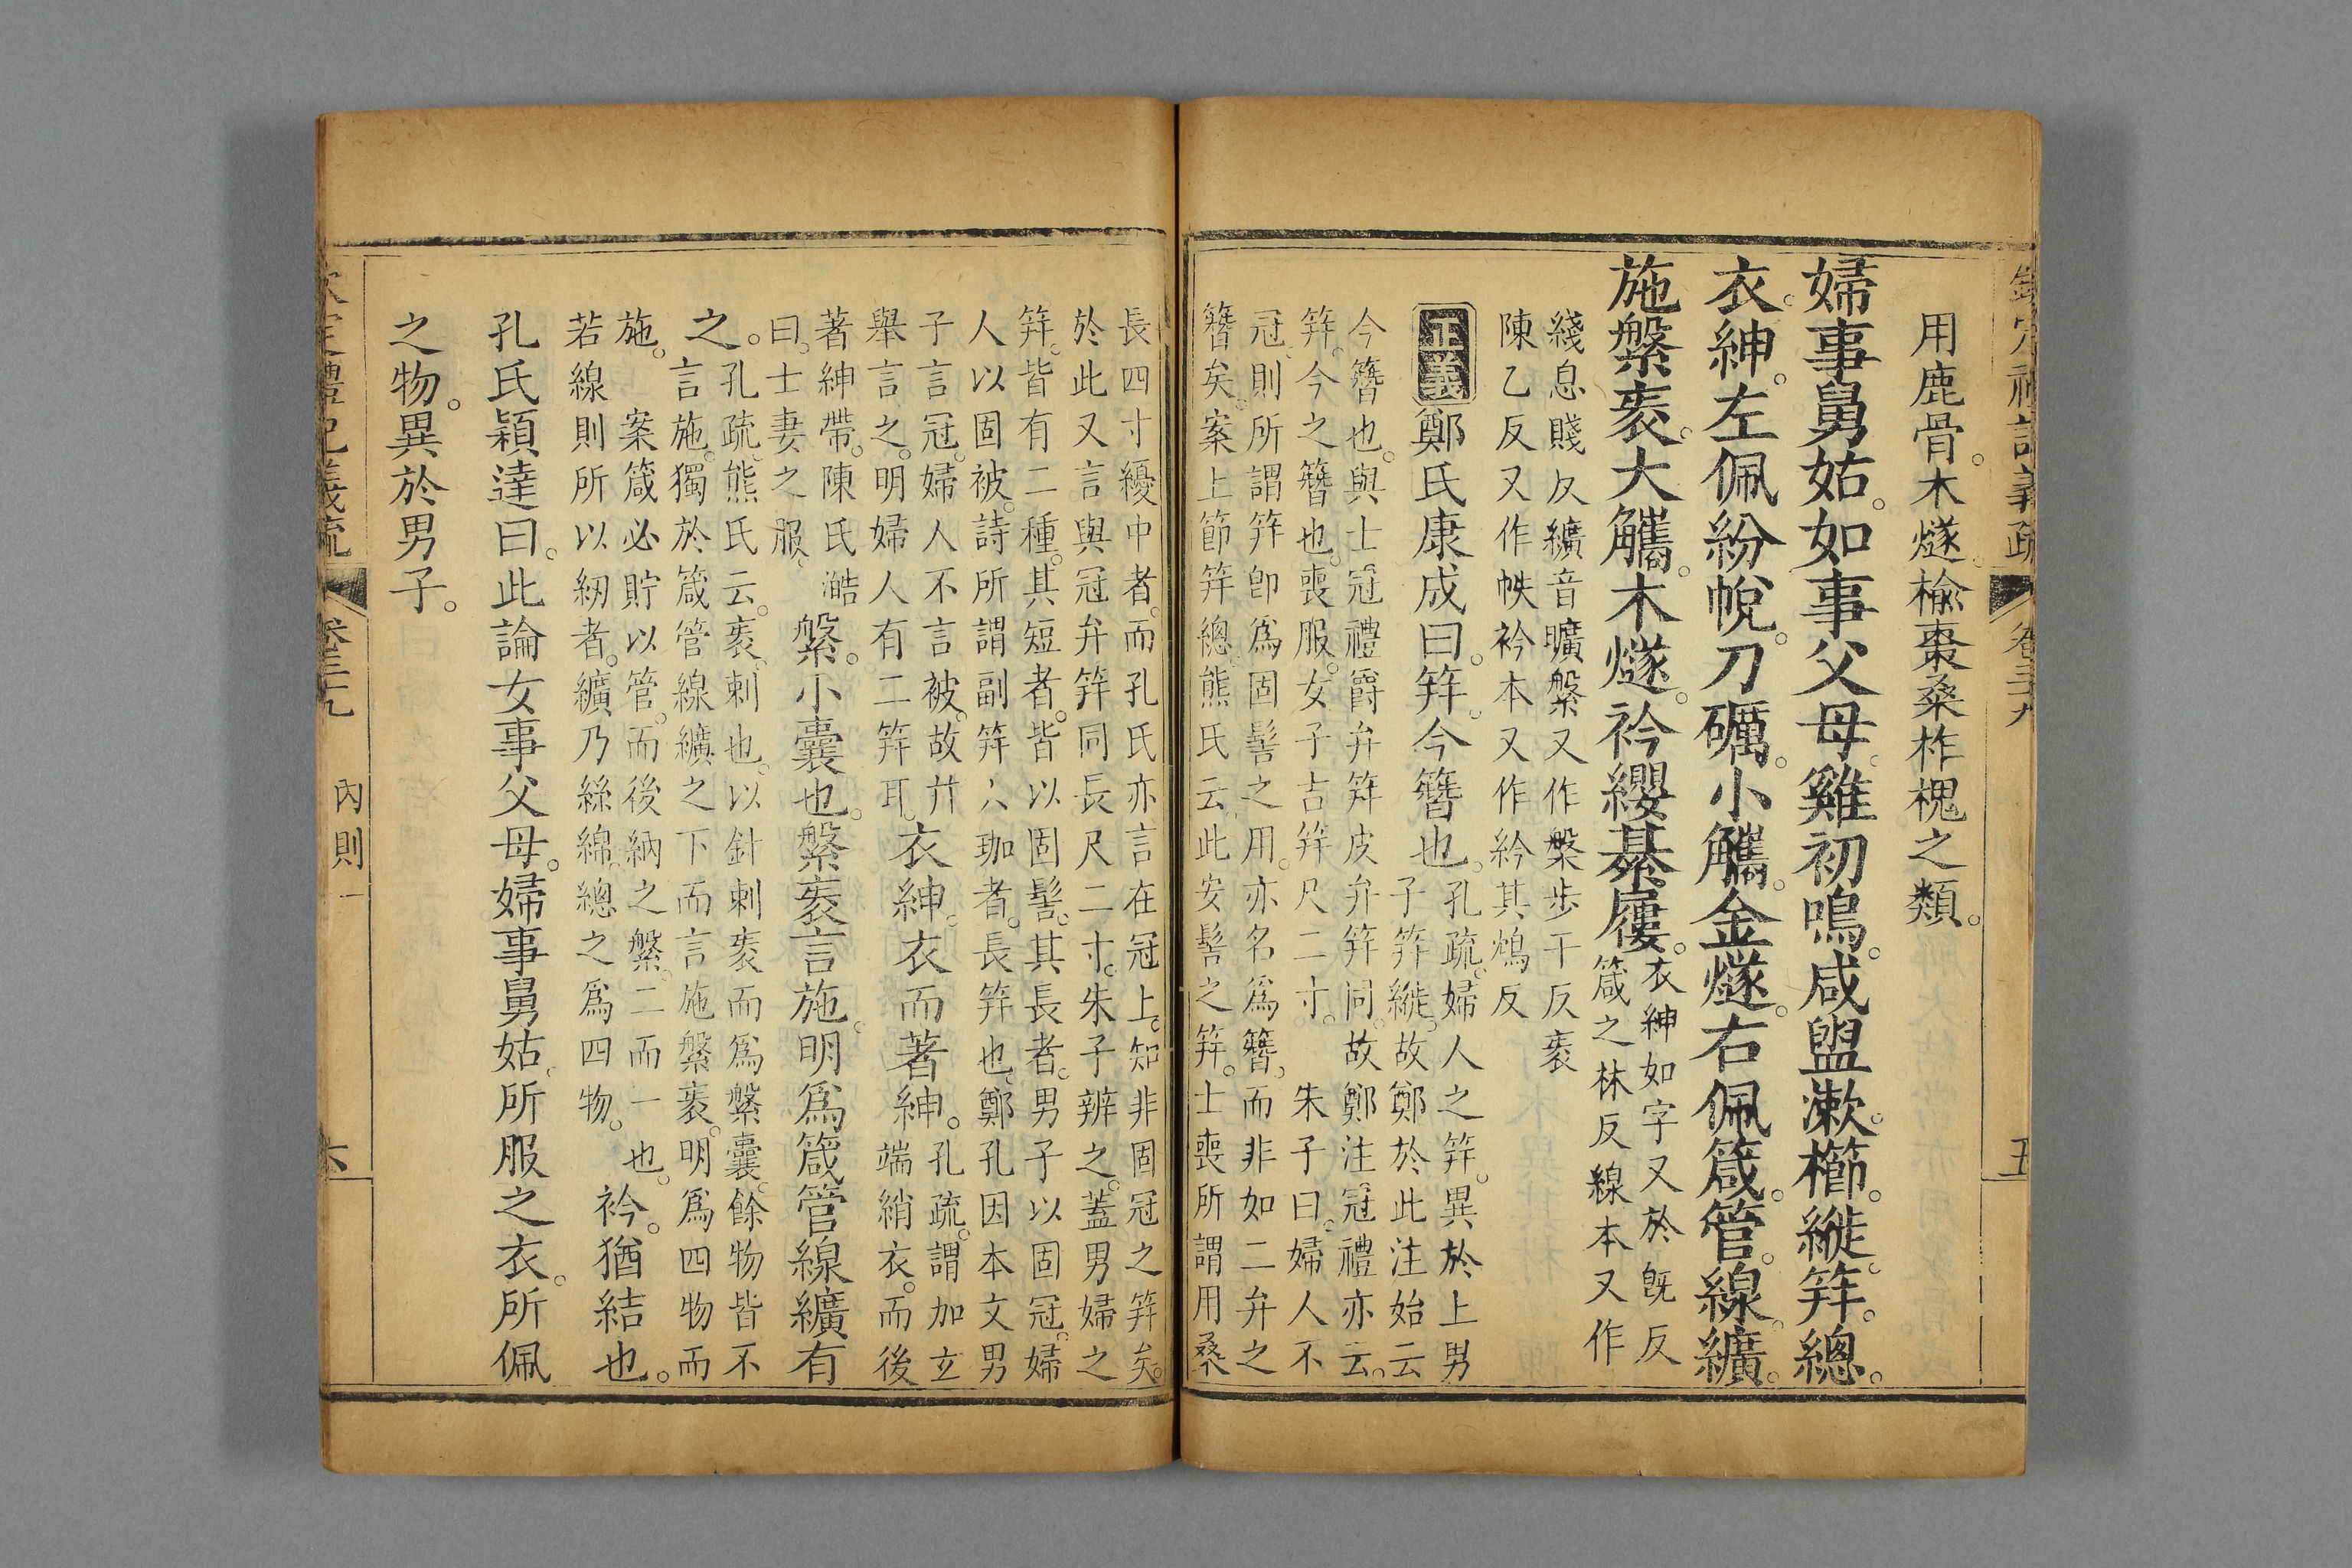 用鹿骨。木燧。榆棗桑柞槐之類。
婦事舅姑。如事父母。雞初鳴。咸盥漱。櫛。縰。笄。總。
衣。紳。左佩紛帨。刀礪。小觿。金燧。右佩箴。管。線。纊。
施縏袠。大觿。木燧。衿纓。綦屨。
衣紳如字又於旣反
箴之林反線本又作
綫息賤反纊音曠縏又作槃步干反袠
陳乙反又作帙衿本又作紟其鴆反
正義
鄭氏康成曰。笄。今簪也。
孔疏。婦人之笄。異於上男
子笄縰。故鄭於此注始云
今簪也。與士冠禮爵弁笄皮弁笄同。故鄭注冠禮亦云。
笄。今之簪也。喪服。女子吉笄尺二寸。 朱子曰。婦人不
冠。則所謂笄卽爲固髻之用。亦名爲簪。而非如二弁之
簪矣。案上節笄總。熊氏云。此安髻之笄。士喪所謂用桑
長四寸纋中者。而孔氏亦言在冠上。知非固冠之笄矣。
於此又言與冠弁笄同長尺二寸。朱子辨之。蓋男婦之
笄。皆有二種。其短者。皆以固髻。其長者。男子以固冠。婦
人以固被。詩所謂副笄六珈者。長笄也。鄭孔因本文男
子言冠。婦人不言被。故幷
舉言之。明婦人有二笄耳。
衣紳。衣而著紳。
孔疏。謂加玄
端綃衣。而後
著紳帶。陳氏澔
曰。士妻之服。
縏。小囊也。縏袠言施。明爲箴管線纊有
之。
孔疏。熊氏云。袠。刺也。以針刺袠而爲縏囊。餘物皆不
言施。獨於箴管線纊之下而言施縏袠。明爲四物而
施。 案箴必貯以管。而後納之縏。二而一也。
若線則所以紉者。纊乃絲綿。總之爲四物。
衿。猶結也。
孔氏穎達曰。此論女事父母。婦事舅姑。所服之衣。所佩
之物。異於男子。
卷三十九
內則一
六